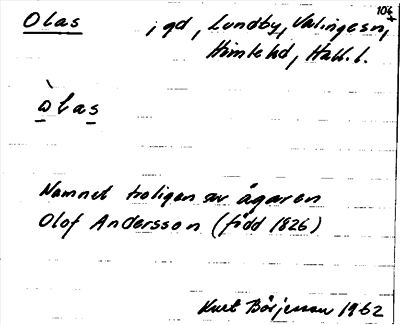 104
Olas ; gd, Lundby, Valingesn,
Himle hd, Hall. l.
òlas
Namnet troligen av ägaren
Olof Andersson (född 1826)
Kurt Börjesson 1962